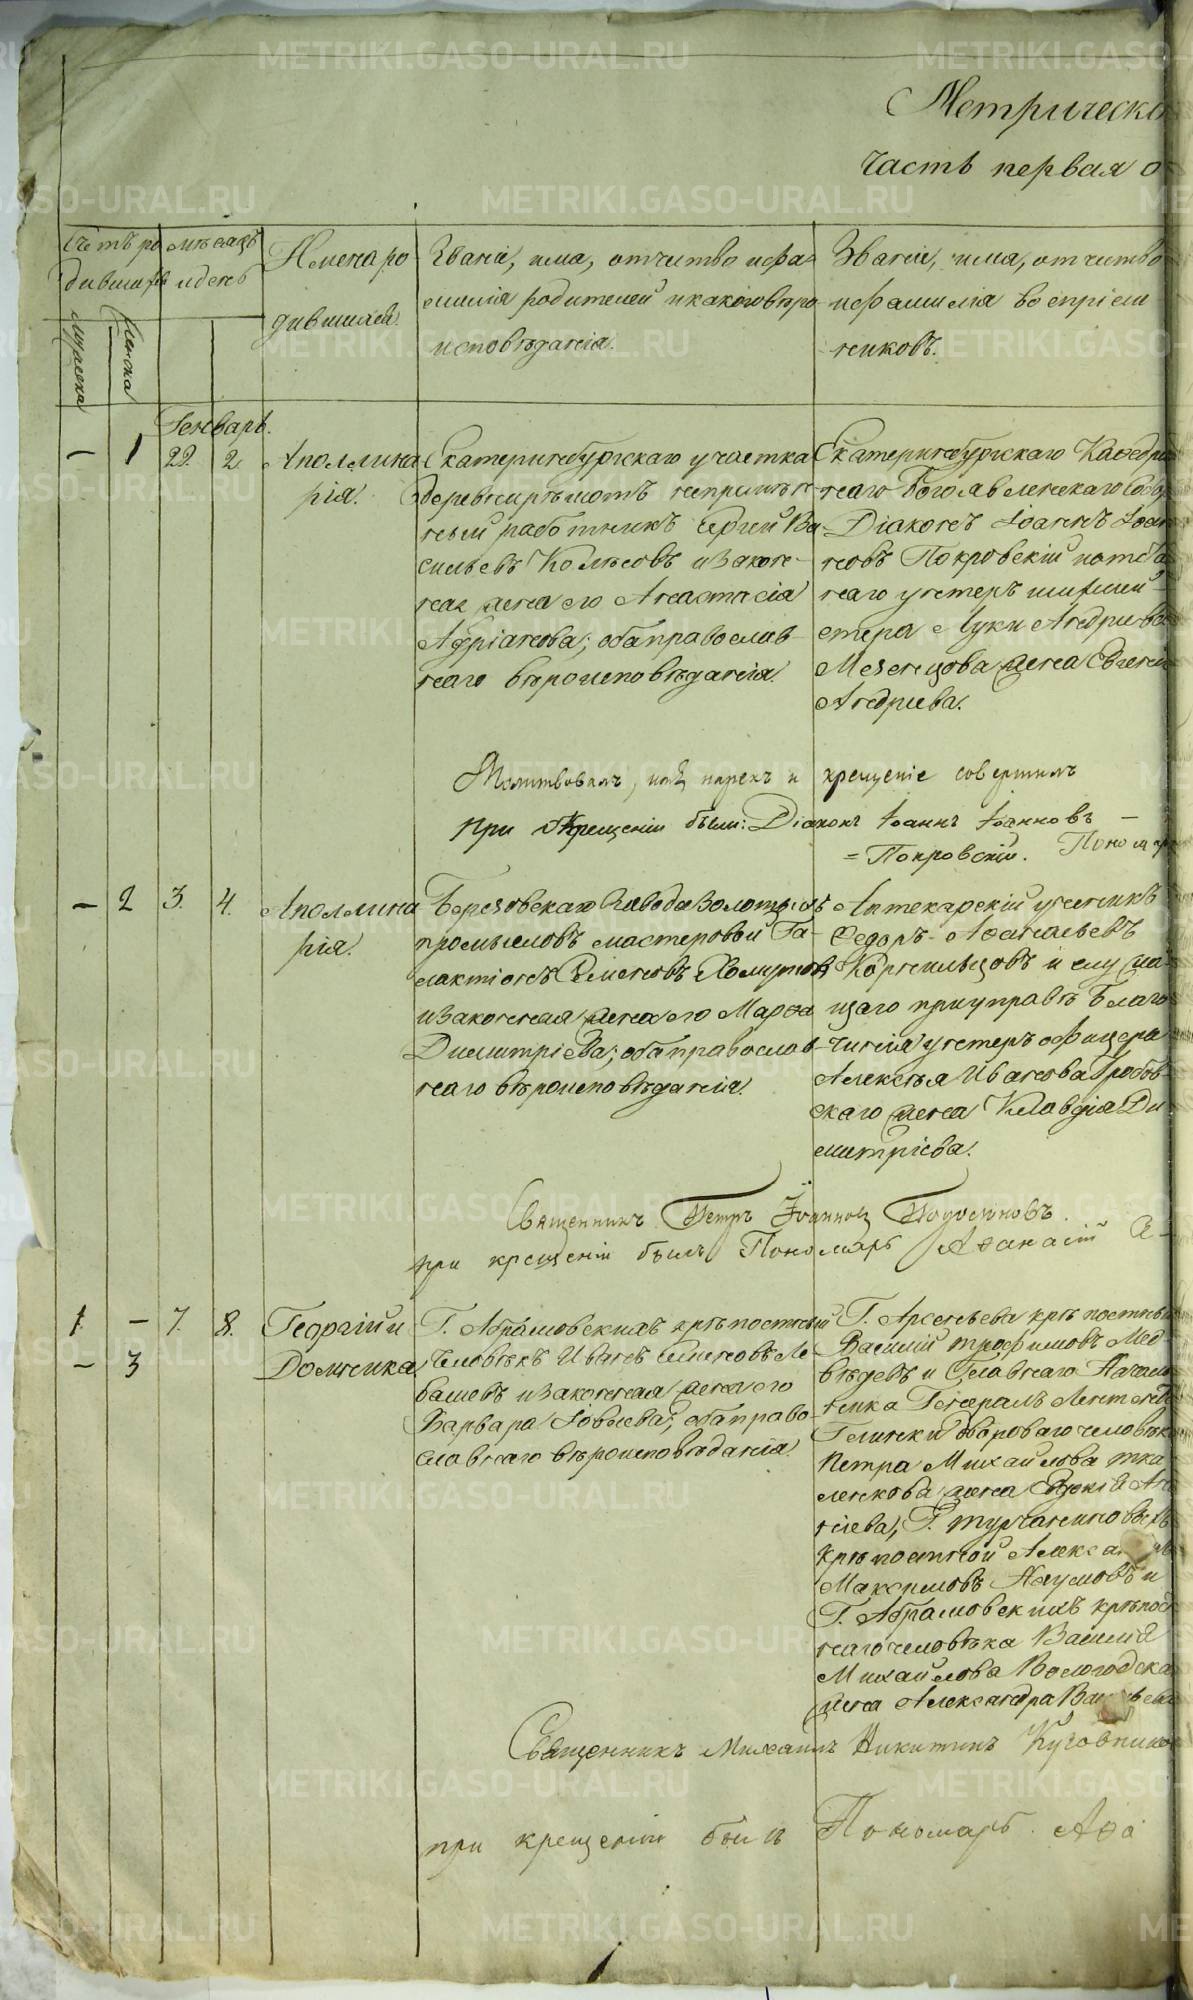 Метрическ
Часть первая о
Счетъ ро
дившихся
мѣсяцъ
и день
Имена ро
дившихся.
Званiе, имя, отчитво и фа-
милiя родителей и какого вѣро
исповѣданiя.
Званiе, имя, отчитво
и фамилiя воспрiем
никовъ.
мужска
женска
Генварь.
— 1 29. 2.
Аполлина
рiя.
Екатеринбургскаго участка
деревни
работникъ Сергей Ва
сильевъ Колѣсовъ и закон-
ная жена его Анастасiя
Адрiанова; оба православ-
наго вѣроисповѣданiя.
Екатеринбургскаго Каѳедра
наго Богоявленскаго Собо
Дiаконъ Iоаннъ Iоан
новъ Покровскiй и
наго унтеръ шихтмей-
стера Луки Андрiева
Мезенцова жена Евгенiя
Андрiева.
Молитвовалъ, нарекъ и крещенiе совершилъ
При Крещенiи были: Дiаконъ Iоаннъ Iоанновъ —
= Покровскiй. Пономар
— 2 3. 4.
Аполлина
рiя.
Березовскаго Завода Золотыхъ
промысловъ мастеровой Га-
лактiонъ Семеновъ Хомутовъ
и законная жена его Марѳа
Димитрiева; оба православ-
наго вѣроисповѣданiя.
Аптекарскiй ученикъ
Ѳедоръ Аѳанасьевъ
Кормильцовъ и слу жа-
щаго при управѣ Благо-
чинiя унтеръ офицера
Алексѣя Иванова Гробов-
скаго жена Клавдiя Ди-
митрiева.
Священникъ Петръ Iоанновъ
при крещенiи былъ Пономарь Аѳанасiй
1. — 7. 8.
— 3
Георгiй и
Домника.
Г. Абрамовскихъ крѣпостный
человѣкъ Иванъ Семеновъ Ле
башевъ и законная жена его
Варвара Iовлева; оба право-
славнаго вѣроисповѣданiя.
Г. Арсеньева крѣпостный
Василiй Трофимовъ Мед
вѣдевъ и Главнаго Началь
ника Генералъ Лейтенанта
Глинки двороваго человѣка
Петра Михайлова Тка
ленкова жена Евдокiя
Г. Турчаниновыхъ
крѣпостной
Максимовъ Наумовъ и
Г. Абрамовскихъ крѣпост
наго человѣка Василiя
Михайлова Вологодска
жена Александра
Священникъ Михаилъ Никитинъ
при крещенiи былъ Пономарь. Аѳа
METRIKI.GASO-URAL.RU